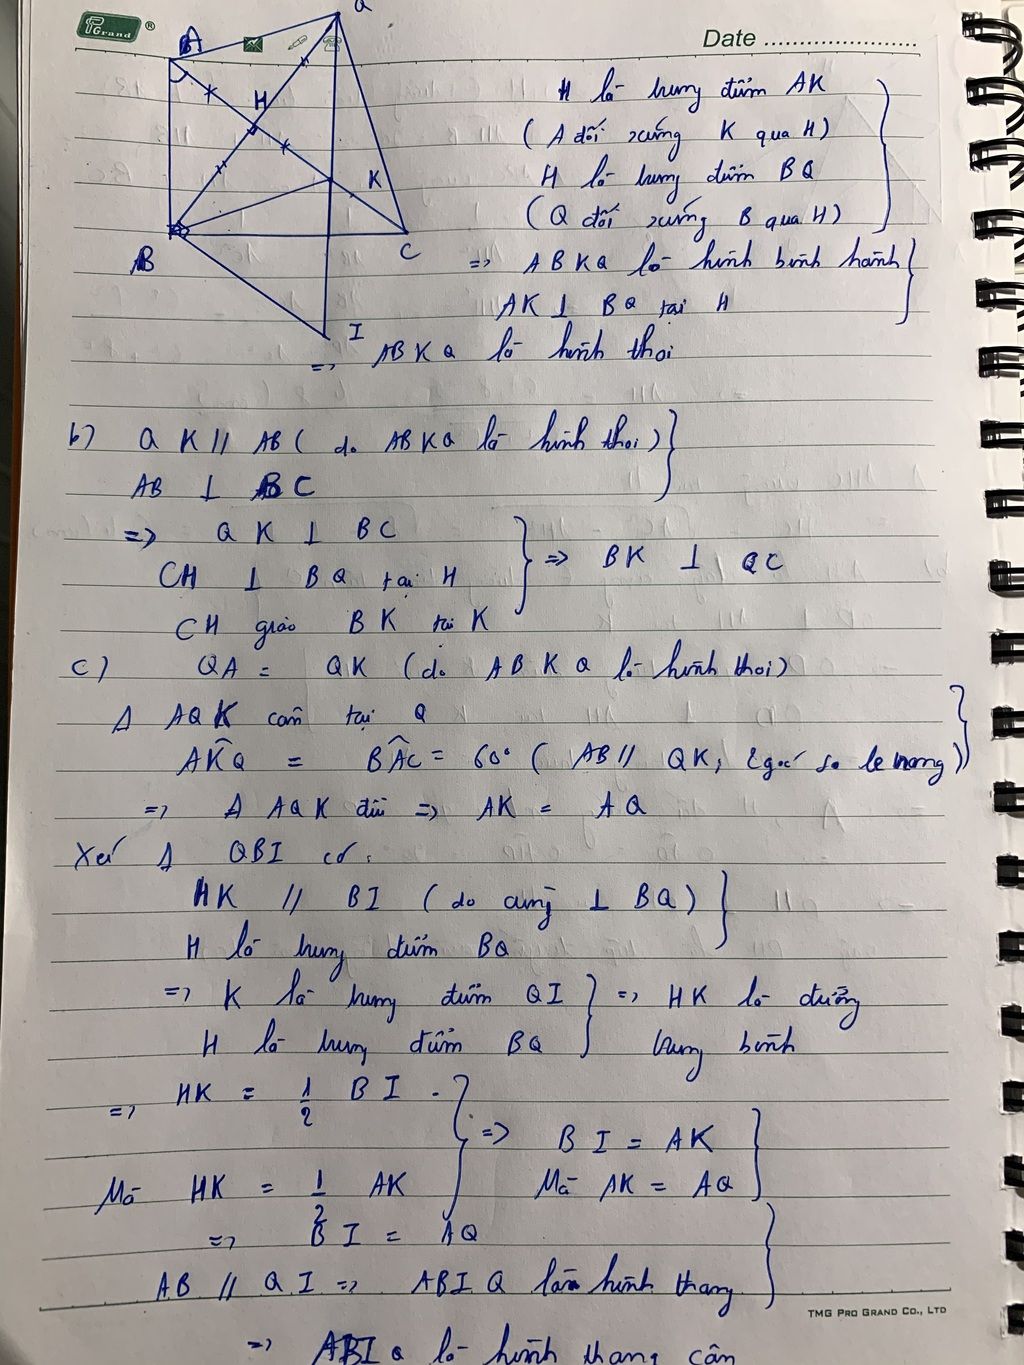 Grand ®
Date
H là trung điểm AK
( A đối xứng K qua H)
H là trung điểm BQ
(Q đối xứng B qua H)
=> ABKQ là hình bình hành
AK ⊥ BQ tại H
=> ABKQ là hình thoi
A
Q
H
K
B
C
I
b) QK // AB ( do ABKQ là hình thoi)
AB ⊥ BC
=> QK ⊥ BC
CH ⊥ BQ tại H => BK ⊥ QC
CH giao BK tại K
c) QA = QK (do ABKQ là hình thoi)
Δ AQK cân tại Q
AK̂Q = BÂC = 60° ( AB // QK, 2 góc so le trong)
=> Δ AQK đều => AK = AQ
Xét Δ QBI có:
HK // BI ( do cùng ⊥ BQ)
H là trung điểm BQ
=> K là trung điểm QI => HK là đường
H là trung điểm BQ trung bình
=> HK = 1/2 BI.
=> BI = AK
Mà HK = 1/2 AK Mà AK = AQ
=> BI = AQ
AB // QI => ABIQ là hình thang
=> ABIQ là hình thang cân
TMG PRO GRAND CO., LTD